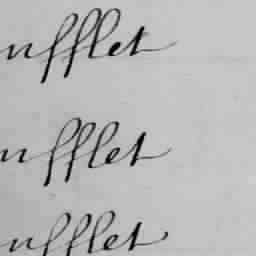 ufflet
ufflet
ufflet